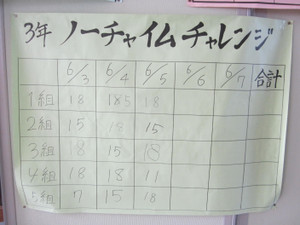 3年 ノーチャイムチャレンジ
6/3 6/4 6/5 6/6 6/7 合計
1組 18 18
2組 15 18 15
3組 18 15 18
4組 18 18 11
5組 7 15 18